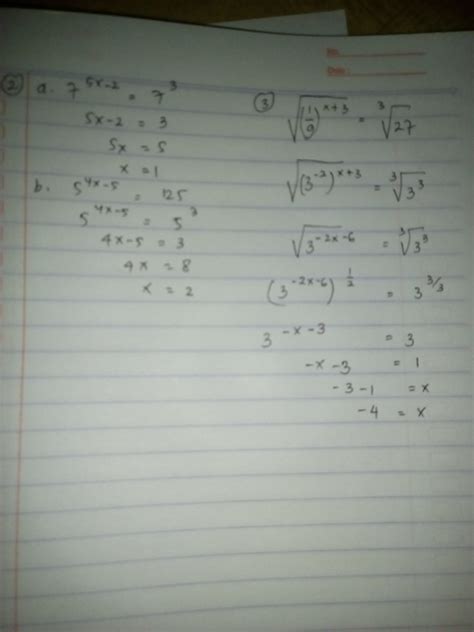 No.
Date :
② a. 7^(5x-2) = 7^3
5x-2 = 3
5x = 5
x = 1
b. 5^(4x-5) = 125
5^(4x-5) = 5^3
4x-5 = 3
4x = 8
x = 2
③ √((1/9)^(x+3)) = ³√27
√((3^-2)^(x+3)) = ³√(3^3)
√(3^(-2x-6)) = ³√(3^3)
(3^(-2x-6))^(1/2) = 3^(3/3)
3^(-x-3) = 3
-x-3 = 1
-3-1 = x
-4 = x